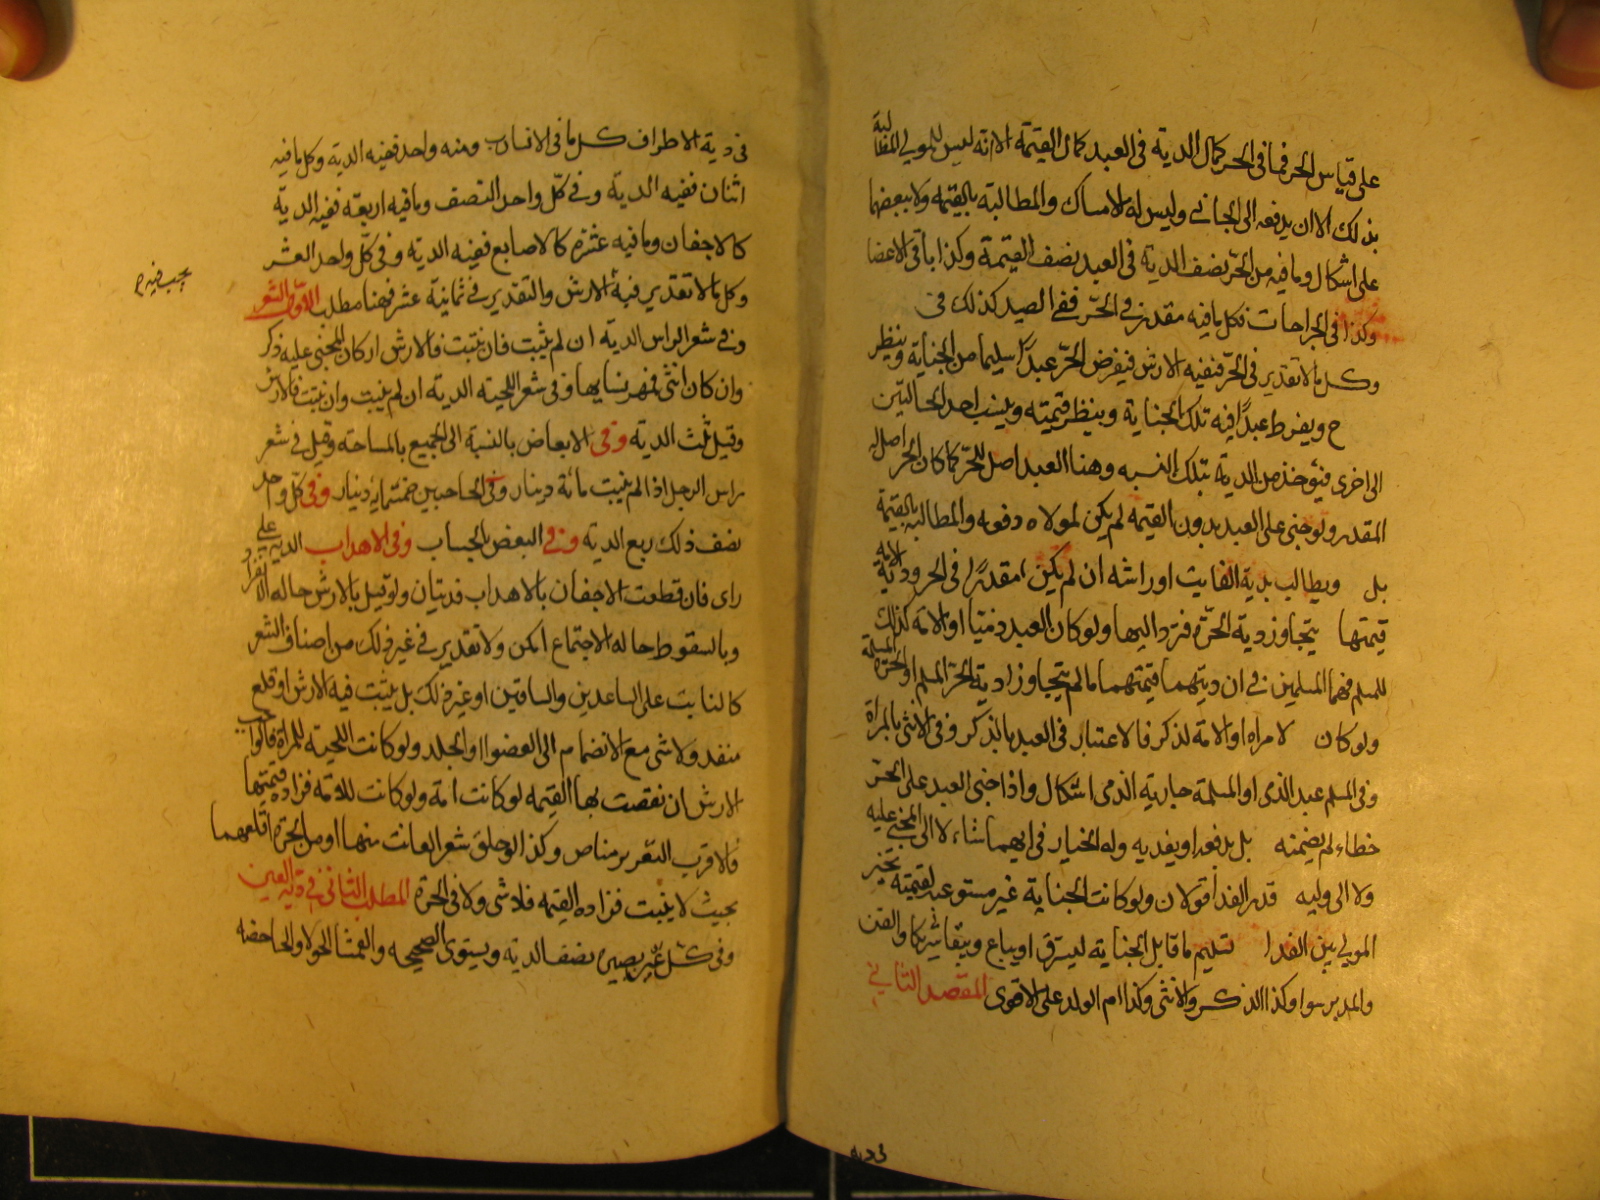 على قياس الحر فما في الحر كمال الدية في العبد كمال القيمة الا انه ليس للمولي المطالبة
بذلك الا ان يدفعه الى الجاني وليس له الامساك والمطالبة بالقيمه ولا ببعضها
على اشكال وما فيه من الحر نصف الدية في العبد نصف القيمة وكذا باقي الاعضا
وكذا في الجراحات فكل ما فيه مقدر في الحر ففي الصيد كذلك في
وكل ما لا تقدير في الحر ففيه الارش فيفرض الحر عبدا سليما من الجناية وينظر
ح ويفرط عبدا فيه تلك الجناية وينظر قيمته وينسب احدى الحالتين
الى اخرى فيؤخذ من الدية بتلك النسبه وهنا العبد اصل للحر كما كان الحر اصل له
المقدر ولو جنى على العبد بدون القيمه لم يكن لمولاه دفعه والمطالبة بالقيمة
بل ويطالب بدية الفايت او ارشه ان لم يكن مقدرا في الحر ودية الامة
قيمتها يتجاوز دية الحرة فترد اليها ولو كان العبد ذميا او الامة كذلك
للمسلم فهما المسلمين في ان ديتهما قيمتهما ما لم يتجاوز ادية الحر المسلم او الحرة المسلمة
ولو كان لامراه او الامة لذكر فالاعتبار في العبد بالذكر وفي الانثى بالمراة
وفي المسلم عبد الذمي او المسلمة جارية الذمى اشكال واذا جنى العبد على الحر
خطاء لم يضمنه بل يدفعه او يفديه وله الخيار في ايهما شاء لا الى المجني عليه
ولا الى وليه قدر الفدا قولان ولو كانت الجناية غير مستوعبه لقيمته تخير
المولي بين الفدا تسليم ما قابل الجناية ليسترق او يباع ويبقا شريكا والقن
والمدبر سوا وكذا الذكر والانثى وكذا ام الولد على الاقوى المقصد الثاني
في دية
في دية الاطراف كل ما في الانسان منه واحد ففيه الدية وكل ما فيه
اثنان ففيه الدية وفي كل واحد النصف وما فيه اربعة ففيه الدية
كالاجفان وما فيه عشره كالاصابع ففيه الدية وفي كل واحد العشر
وكل ما لا تقدير فيه الارش والتقدير في ثمانية عشر فهنا مطلب الاول الشعر
وفي شعر الراس الدية ان لم ينبت فان نبتت فالارش ان كان المجني عليه ذكر
وان كان انثى فمهر نسايها وفي شعر اللحية الديه ان لم ينبت وان نبتت فالارش
وقيل ثلث الديه وفي الابعاض بالنسبة الى الجميع بالمساحه وقيل في شعر
راس الرجل اذا لم ينبت مائة دينار وفي الحاجبين خمسمائة دينار وفي كل واحد
نصف ذلك ربع الدية وفي البعض بالحساب وفي الاهداب الدية على
راى فان قطعت الاجفان بالاهداب فديتان ولو قيل بالارش حاله الانفراد
وبالسقوط حاله الاجتماع امكن ولا تقدير في غير ذلك من اصناف الشعر
كالنابت على الساعدين والساقين او غير ذلك بل يثبت فيه الارش او قلع
منفرد ولا شى مع الانضمام الى العضو او الجلد ولو كانت اللحية للمراة فالواجب
الارش ان نقصت بها القيمه لو كانت امة ولو كانت للامة فزاده قيمتها
فالاقرب التعزير مناص وكذا لو حلق شعر العانت منها او من الحرة اقلعهما
بحيث لا ينبت فزاده القيمه فلا شى ولا في الحرة المطلب الثاني في دية العين
وفي كل عين بصيره نصف الدية ويستوى الصحيحه والعمشا الحولا والجاحضه